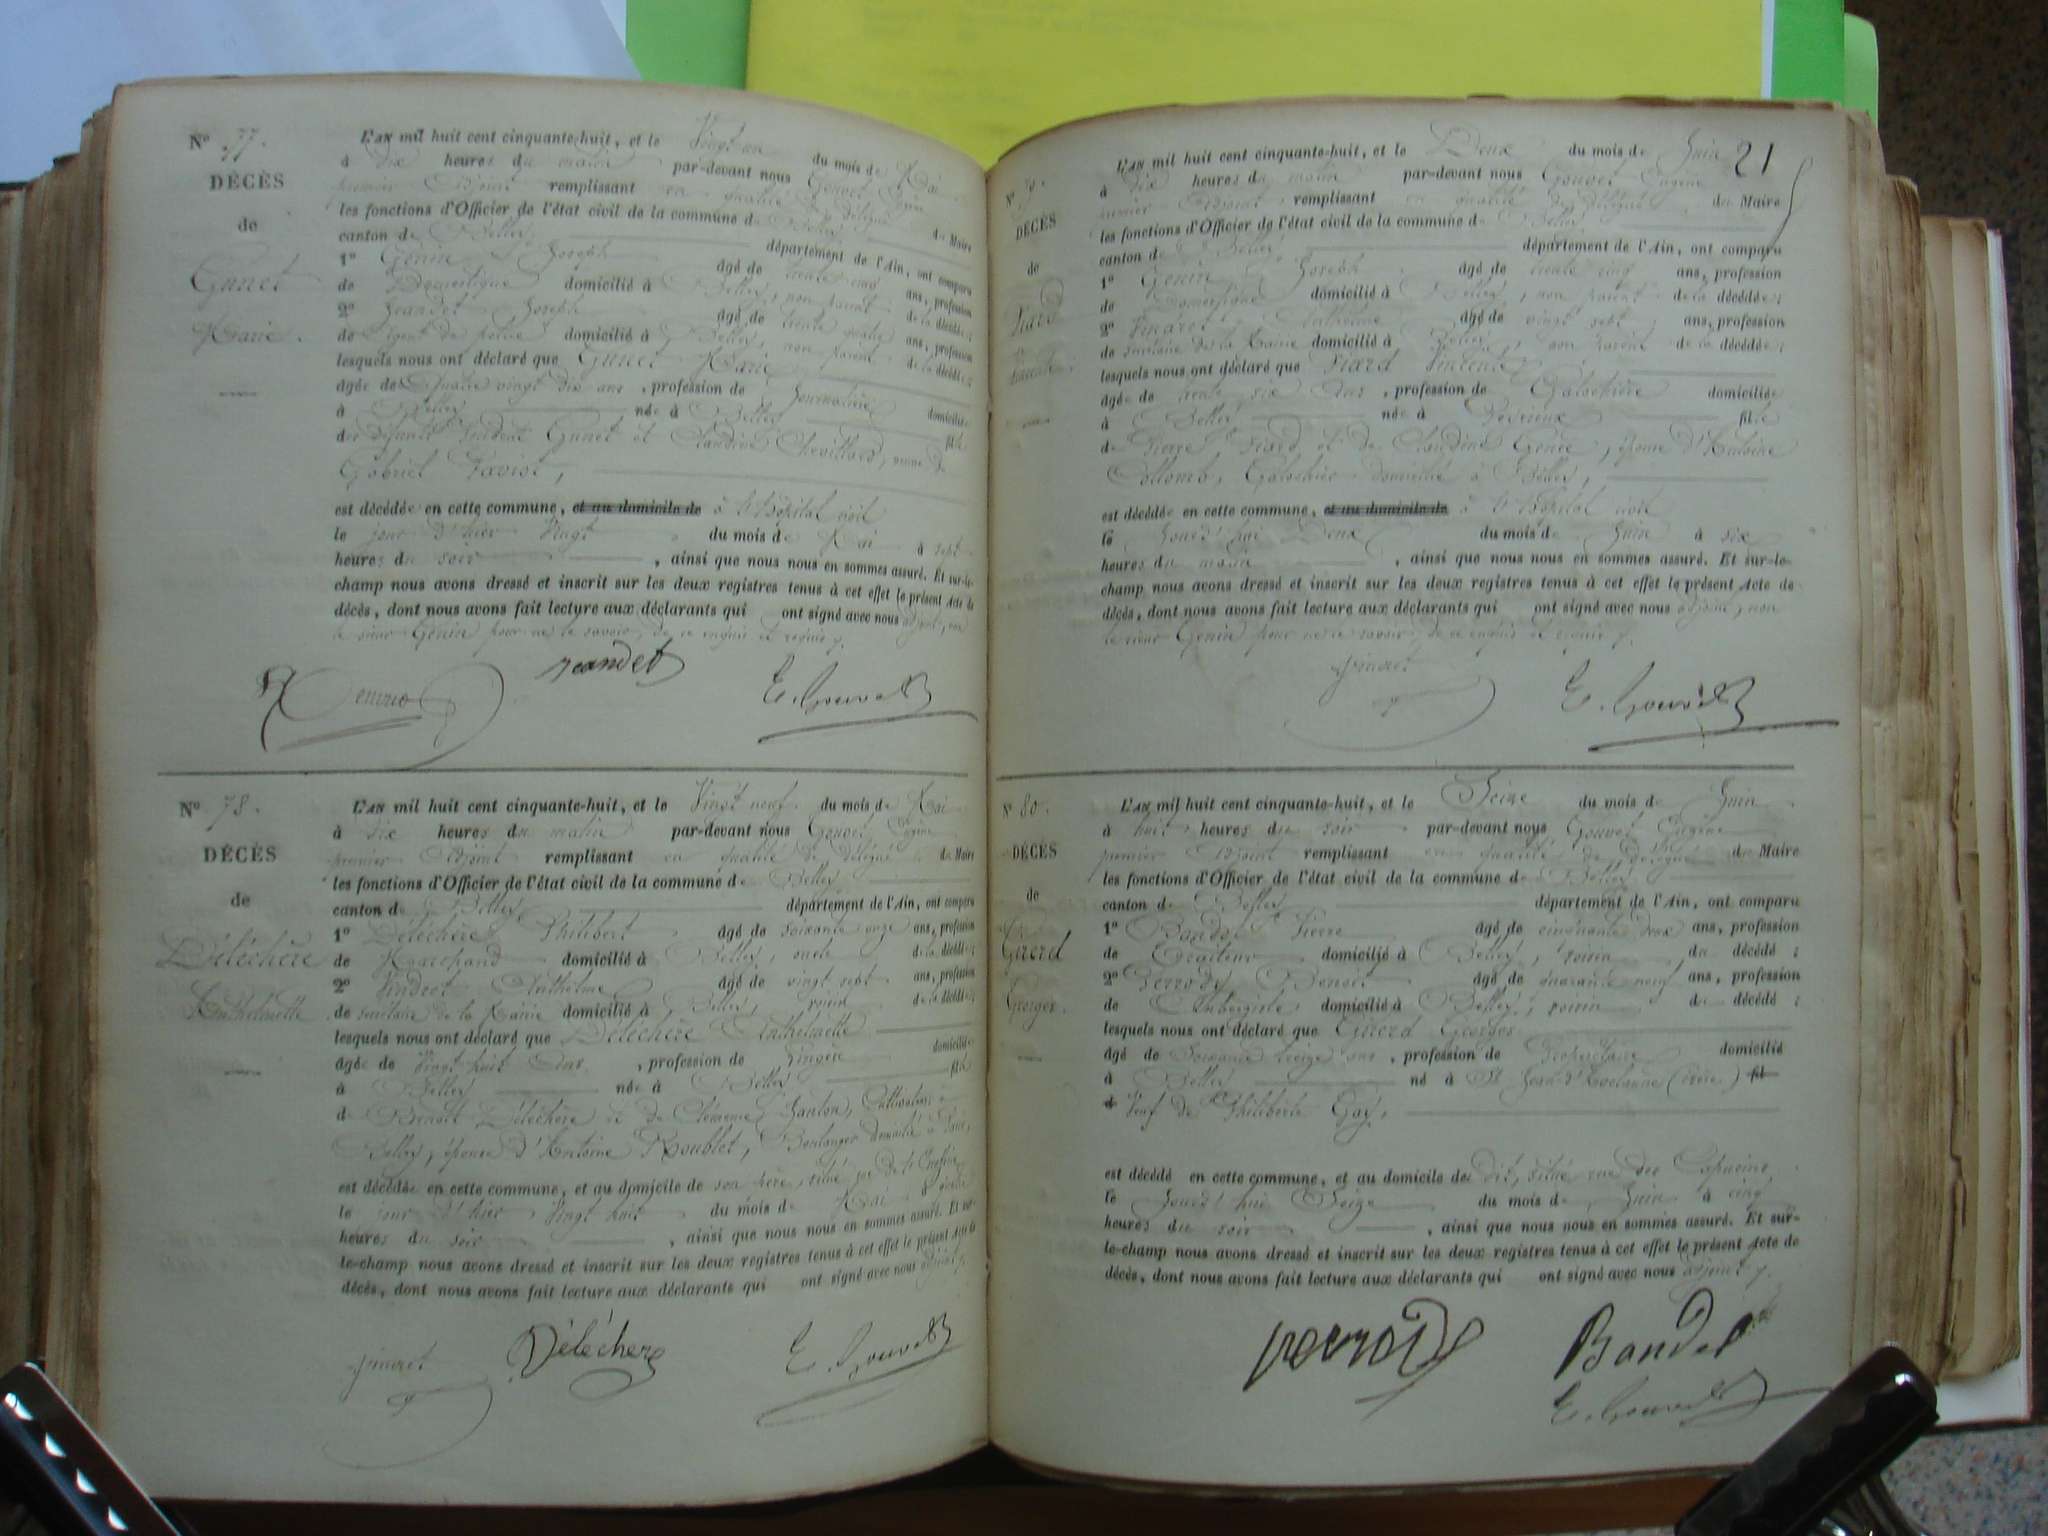 N° 77.
DÉCÈS
de
Gunet
Marie.
L'AN mil huit cent cinquante-huit, et le Vingt un du mois de Mai
à dix heures du matin par-devant nous Gouvet Eugène
premier adjoint remplissant en qualité de délégué du Maire
les fonctions d'Officier de l'état civil de la commune de Belley
canton de Belley département de l'Ain, ont comparu
1° Genin Joseph âgé de trente cinq ans, profession
de Domestique domicilié à Belley, non parent de la décédée;
2° Jeandet Joseph âgé de trente quatre ans, profession
de Agent de police domicilié à Belley, non parent de la décédée;
lesquels nous ont déclaré que Gunet Marie
âgée de Quatre vingt dix ans, profession de Journalière domiciliée
à Belley née à Belley fille
des défunts Gunet et Claudine Chevillard, veuve de
Gabriel
est décédée en cette commune, et au domicile de à l'Hôpital civil
le jour d'hier Vingt du mois de Mai à sept
heures du soir, ainsi que nous nous en sommes assuré. Et sur-le-
champ nous avons dressé et inscrit sur les deux registres tenus à cet effet le présent Acte de
décès, dont nous avons fait lecture aux déclarants qui ont signé avec nous adjoint, non
le sieur Genin pour ne le savoir, de ce enquis et requis
Jeandet
E. Gouvet
N° 78.
DÉCÈS
de
Déléchère
Anthelmette
L'AN mil huit cent cinquante-huit, et le Vingt neuf du mois de Mai
à dix heures du matin par-devant nous Gouvet Eugène
premier adjoint remplissant en qualité de délégué du Maire
les fonctions d'Officier de l'état civil de la commune de Belley
canton de Belley département de l'Ain, ont comparu
1° Déléchère Philibert âgé de soixante onze ans, profession
de Marchand domicilié à Belley, oncle de la décédée;
2° Anthelme âgé de vingt sept ans, profession
de secrétaire de la Mairie domicilié à Belley, voisin de la décédée;
lesquels nous ont déclaré que Déléchère Anthelmette
âgée de Vingt huit ans, profession de Lingère domiciliée
à Belley née à Belley fille
de Benoît Déléchère et de Clémence Janton, Cultivateurs à
Belley, épouse d'Antoine Roublet, Boulanger domicilié à
est décédée en cette commune, et au domicile de son père, situé
le jour d'hier Vingt huit du mois de Mai à
heures du soir, ainsi que nous nous en sommes assuré. Et sur-
le-champ nous avons dressé et inscrit sur les deux registres tenus à cet effet le présent Acte de
décès, dont nous avons fait lecture aux déclarants qui ont signé avec nous adjoint
Déléchère
E. Gouvet
21
DÉCÈS
de
Piard
L'AN mil huit cent cinquante-huit, et le Deux du mois de Juin
à dix heures du matin par-devant nous Gouvet Eugène
premier adjoint remplissant en qualité de délégué du Maire
les fonctions d'Officier de l'état civil de la commune de Belley
canton de Belley département de l'Ain, ont comparu
1° Genin Joseph âgé de trente cinq ans, profession
de Domestique domicilié à Belley, non parent de la décédée;
2° Anthelme âgé de vingt sept ans, profession
de secrétaire de la Mairie domicilié à Belley, non parent de la décédée;
lesquels nous ont déclaré que Piard
âgée de trente six ans, profession de Galochière domiciliée
à Belley née à fille
de Pierre Piard et de Claudine, épouse d'Antoine
Collomb, Galochier domicilié à Belley,
est décédée en cette commune, et au domicile de à l'Hôpital civil
le Jourd'hui Deux du mois de Juin à six
heures du matin, ainsi que nous nous en sommes assuré. Et sur-le-
champ nous avons dressé et inscrit sur les deux registres tenus à cet effet le présent Acte de
décès, dont nous avons fait lecture aux déclarants qui ont signé avec nous adjoint, non
le sieur Genin pour ne le savoir, de ce enquis et requis
E. Gouvet
N° 80.
DÉCÈS
de
Girerd
Georges.
L'AN mil huit cent cinquante-huit, et le Seize du mois de Juin
à huit heures du soir par-devant nous Gouvet Eugène
premier adjoint remplissant en qualité de délégué du Maire
les fonctions d'Officier de l'état civil de la commune de Belley
canton de Belley département de l'Ain, ont comparu
1° Bandel Pierre âgé de cinquante deux ans, profession
de Traiteur domicilié à Belley, voisin du décédé;
2° Perrody Benoît âgé de quarante neuf ans, profession
de Aubergiste domicilié à Belley, voisin du décédé;
lesquels nous ont déclaré que Girerd Georges
âgé de Soixante treize ans, profession de Propriétaire domicilié
à Belley né à St Jean d'Avelanne (Isère) fil
de Veuf de Philiberte Gay,
est décédé en cette commune, et au domicile de dit, situé rue des Capucins
le Jourd'hui Seize du mois de Juin à cinq
heures du soir, ainsi que nous nous en sommes assuré. Et sur-
le-champ nous avons dressé et inscrit sur les deux registres tenus à cet effet le présent Acte de
décès, dont nous avons fait lecture aux déclarants qui ont signé avec nous adjoint
Bandel
E. Gouvet